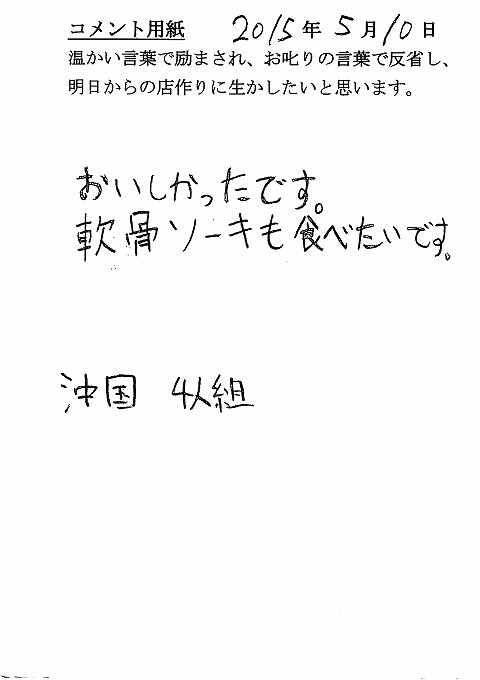 コメント用紙 2015年5月10日
温かい言葉で励まされ、お叱りの言葉で反省し、
明日からの店作りに生かしたいと思います。
おいしかったです。
軟骨ソーキも食べたいです。
沖国 4人組